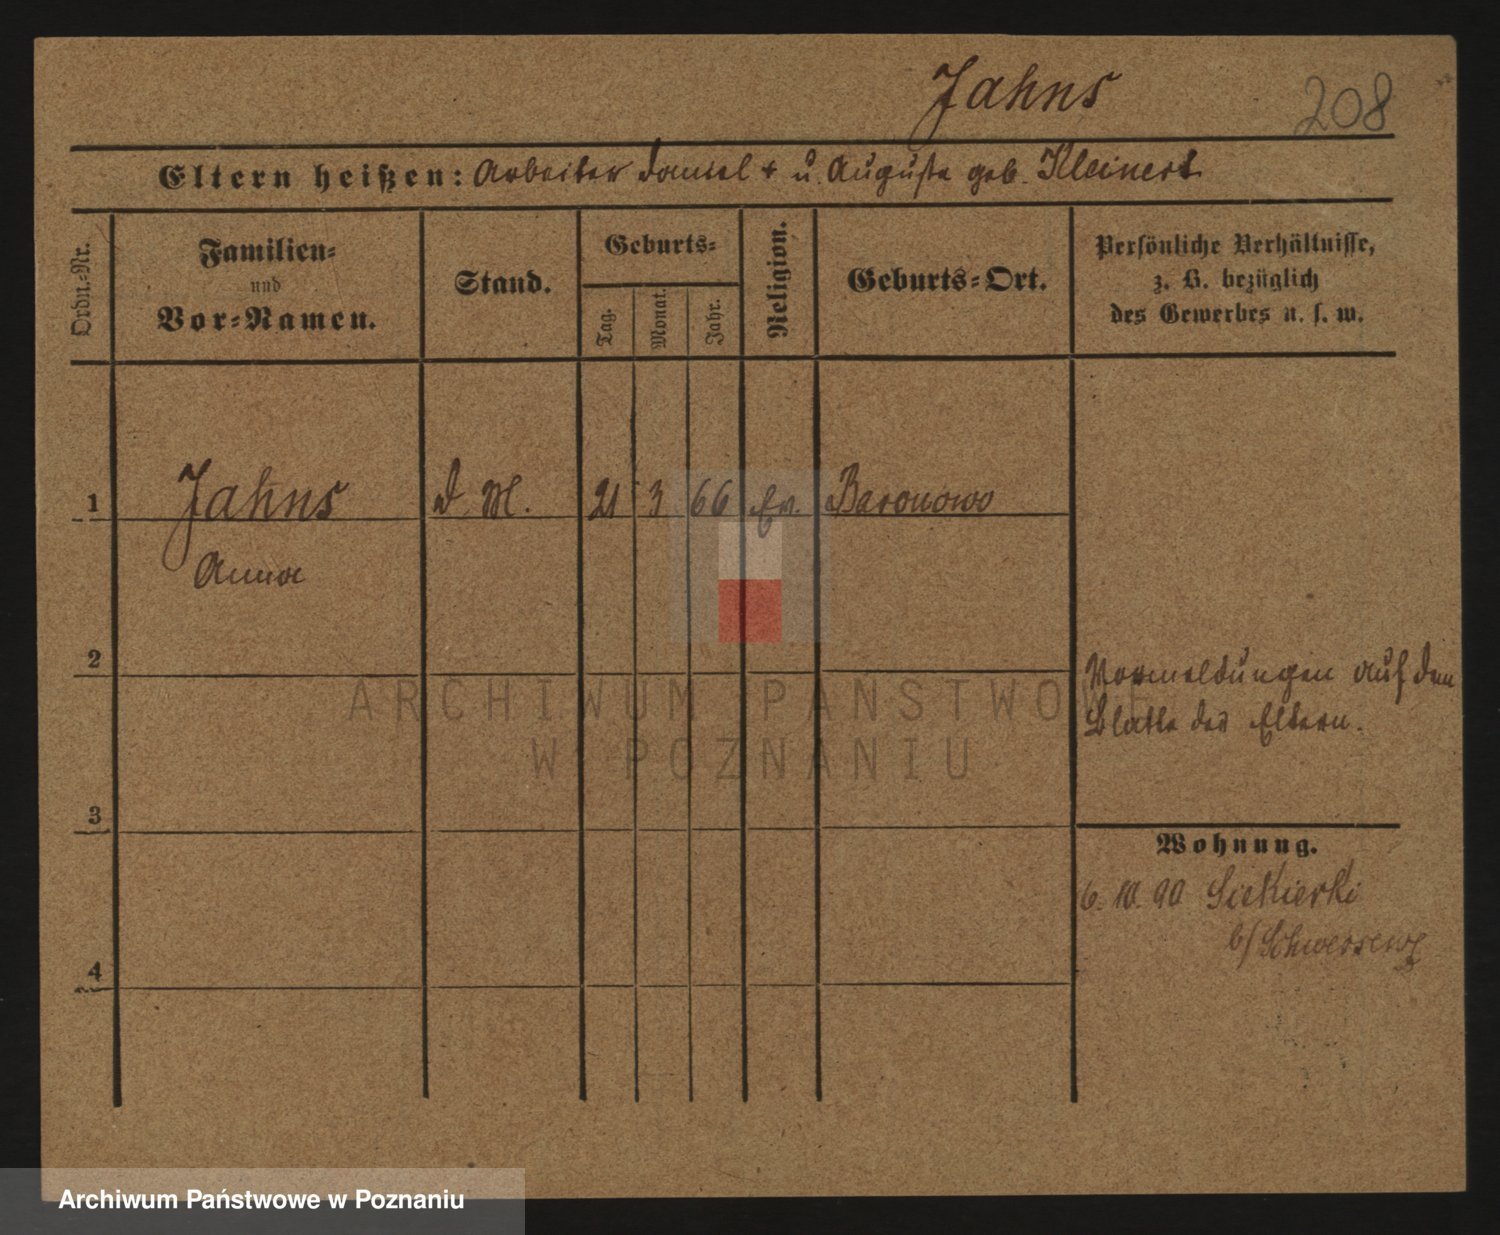 Jahns
208
Eltern heißen: Arbeiter Daniel + u. Auguste geb. Kleinert
Ordn.-Nr.
Familien-
und
Vor-Namen.
Stand.
Geburts-
Tag.
Monat.
Jahr.
Religion.
Geburts-Ort.
Persönliche Verhältnisse,
z. B. bezüglich
des Gewerbes u. s. w.
1
Jahns
d. M.
21
3
66
Ev.
Baronowo
Anna
2
Vormeldungen auf dem
Blatte der Eltern.
ARCHIWUM PAŃSTWOWE
W POZNANIU
3
Wohnung.
6. 10. 90 Siekierki
b/Schwersenz
4
Archiwum Państwowe w Poznaniu